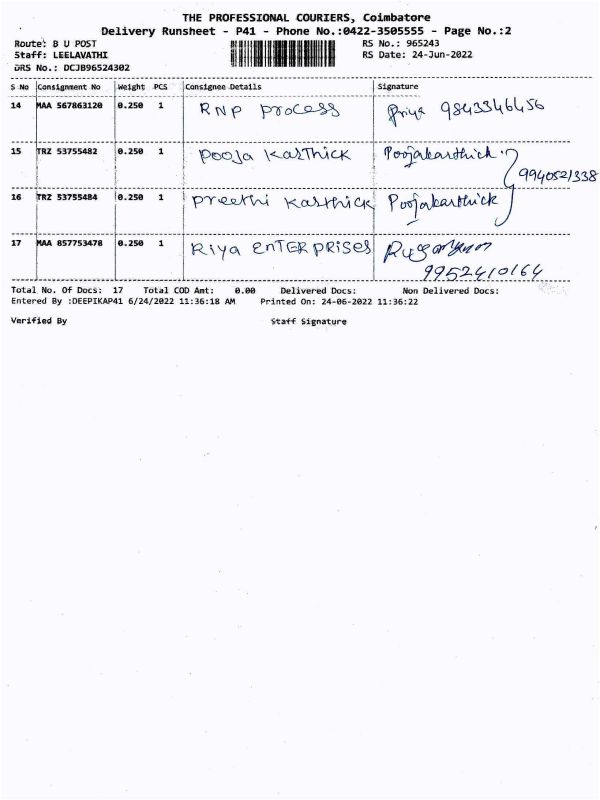 THE PROFESSIONAL COURIERS, Coimbatore
Delivery Runsheet - P41 - Phone No.:0422-3505555 - Page No.:2
Route: B U POST RS No.: 965243
Staff: LEELAVATHI RS Date: 24-Jun-2022
DRS No.: DCJB96524302
S No Consignment No Weight PCS Consignee Details Signature
14 MAA 567863120 0.250 1 RNP Process Priya 9843346456
15 TRZ 53755482 0.250 1 Pooja Karthick Poojakarthick
9940521338
16 TRZ 53755484 0.250 1 Preethi Karthick Poojakarthick
17 MAA 857753478 0.250 1 Riya ENTERPRISES
9952410164
Total No. Of Docs: 17 Total COD Amt: 0.00 Delivered Docs: Non Delivered Docs:
Entered By :DEEPIKAP41 6/24/2022 11:36:18 AM Printed On: 24-06-2022 11:36:22
Verified By Staff Signature